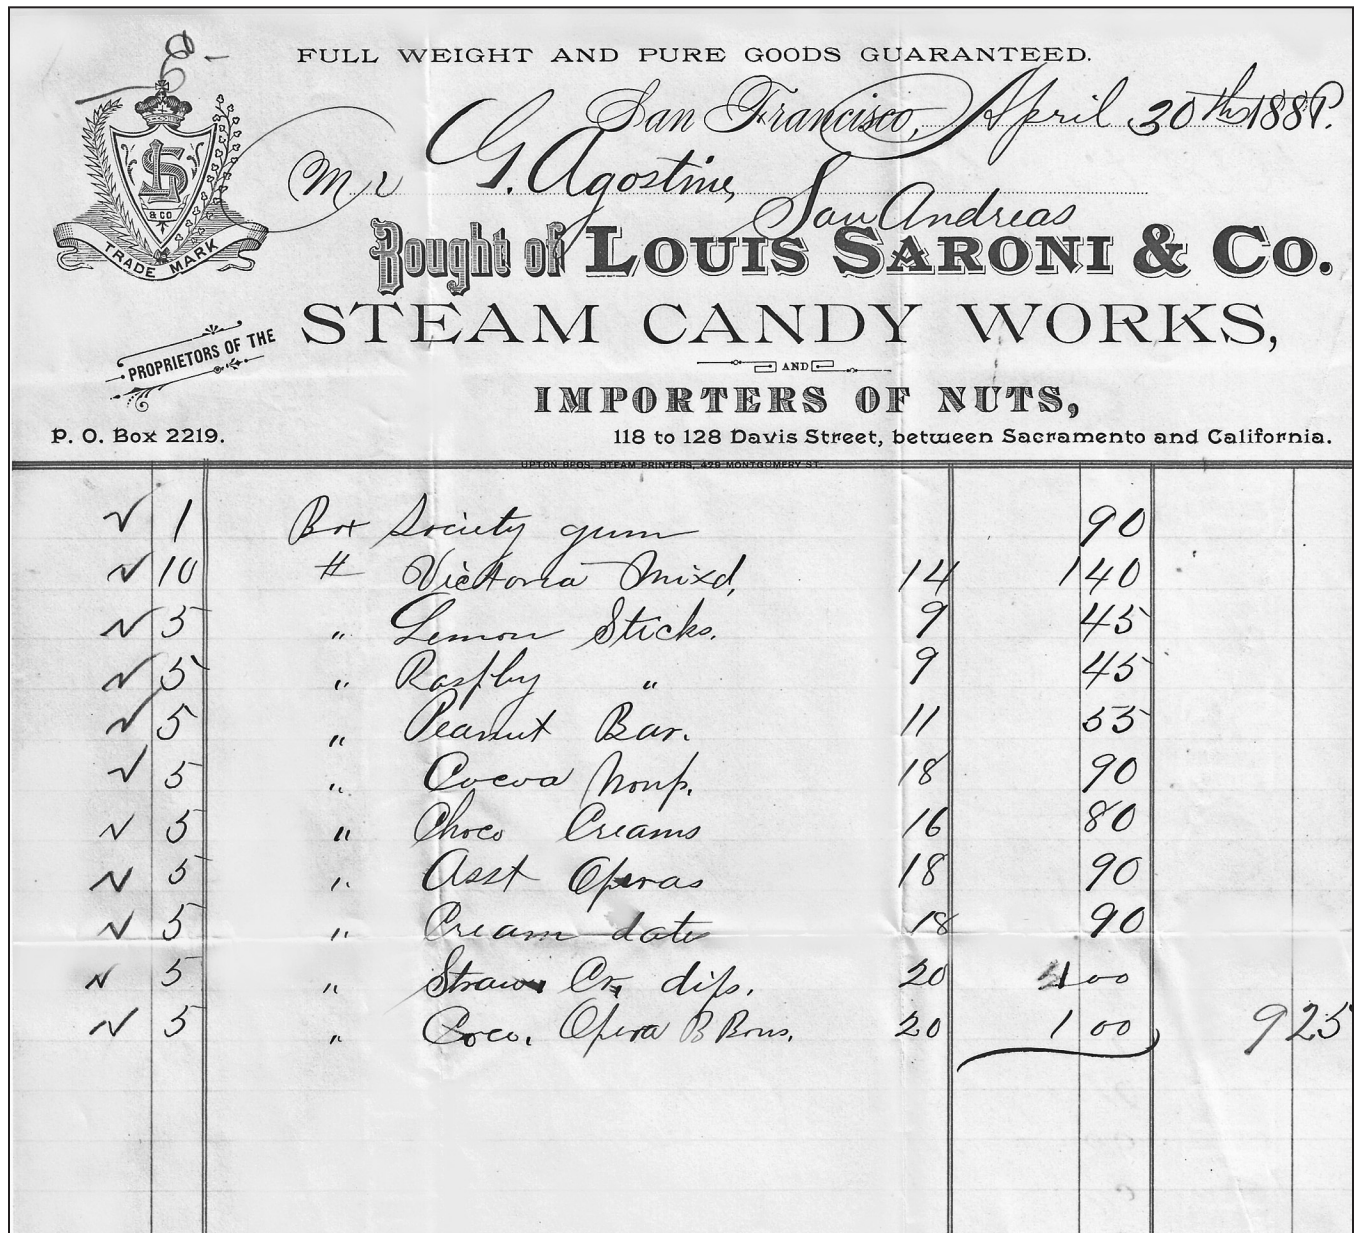 FULL WEIGHT AND PURE GOODS GUARANTEED.
San Francisco, April 30th 188
Mr G. Agostine,
San Andreas
LS
& CO
TRADE MARK
Bought of LOUIS SARONI & CO.
PROPRIETORS OF THE
STEAM CANDY WORKS,
AND
IMPORTERS OF NUTS,
P. O. Box 2219.
118 to 128 Davis Street, between Sacramento and California.
UPTON BROS. STEAM PRINTERS, 429 MONTGOMERY ST.
✓ 1 Box Society gum 90
✓ 10 # Victoria Mixd, 14 1 40
✓ 5 " Lemon Sticks. 9 45
✓ 5 " Raspby " 9 45
✓ 5 " Peanut Bar. 11 55
✓ 5 " Cocoa Nonp. 18 90
✓ 5 " Choco Creams 16 80
✓ 5 " Asst Operas 18 90
✓ 5 " Cream date 18 90
✓ 5 " Straw Cr. dips. 20 1 00
✓ 5 " Coco. Opera B Bons. 20 1 00 9 25